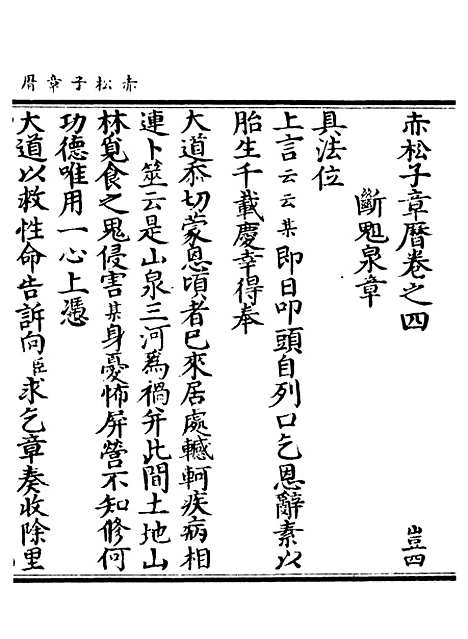 赤松子章曆
赤松子章曆卷之四 豈四
斷鬼泉章
具法位
上言云云某即日叩頭自列口乞恩辭素以
胎生千載慶幸得奉
大道忝切蒙恩頃者已來居處轗軻疾病相
連卜筮云是山泉三河爲禍并此間土地山
林覓食之鬼侵害某身憂怖屏營不知修何
功德唯用一心上憑
大道以救性命告訴向臣求乞章奏收除里